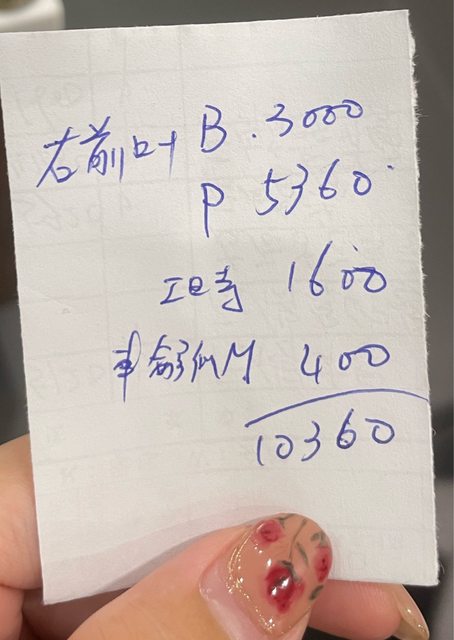 右前叶 B.3000
P 5360
工时 1600
400
10360